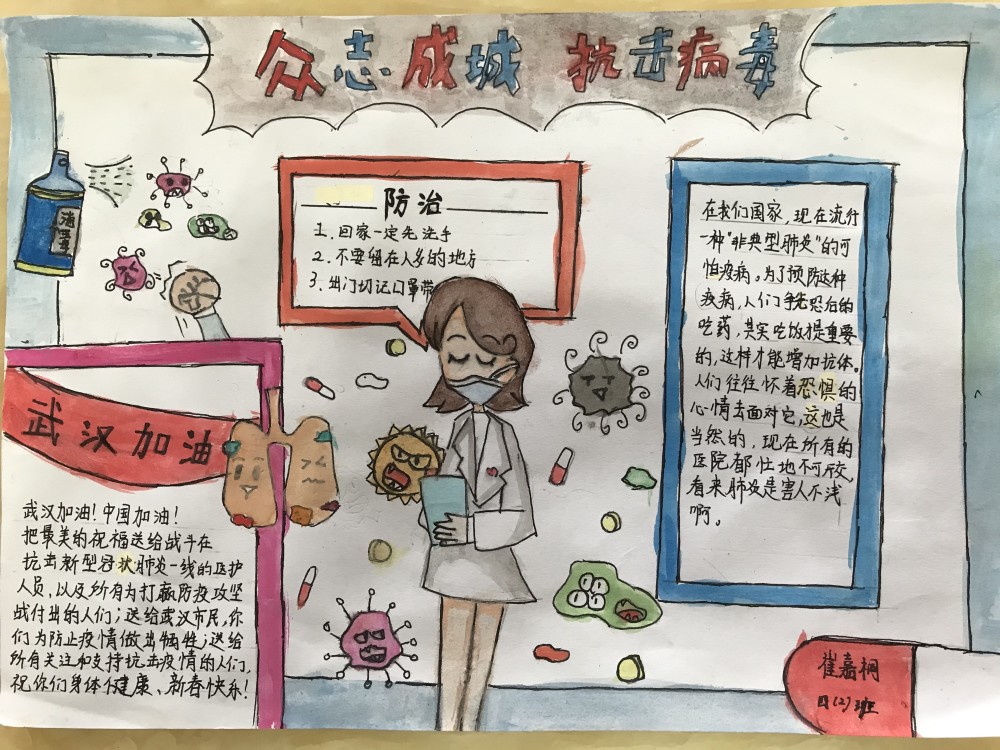 众志成城 抗击病毒
消毒
防治
1. 回家一定先洗手
2. 不要留在人多的地方
3. 出门切记口罩带
在我们国家，现在流行
一种“非典型肺炎”的可
怕疫病。为了预防这种
疫病，人们争先恐后的
吃药，其实吃饭才是重要
的，这样才能增加抗体。
人们往往怀着恐惧的
心情去面对它，这也是
当然的，现在所有的
医院都忙地不可
看来肺炎是害人不浅
啊。
武汉加油
武汉加油！中国加油！
把最美的祝福送给战斗在
抗击新型冠状肺炎一线的医护
人员，以及所有为打赢防疫攻坚
战付出的人们；送给武汉市民，你
们为防止疫情做出牺牲；送给
所有关注和支持抗击疫情的人们，
祝你们身体健康、新春快乐！
崔嘉桐
四(2)班